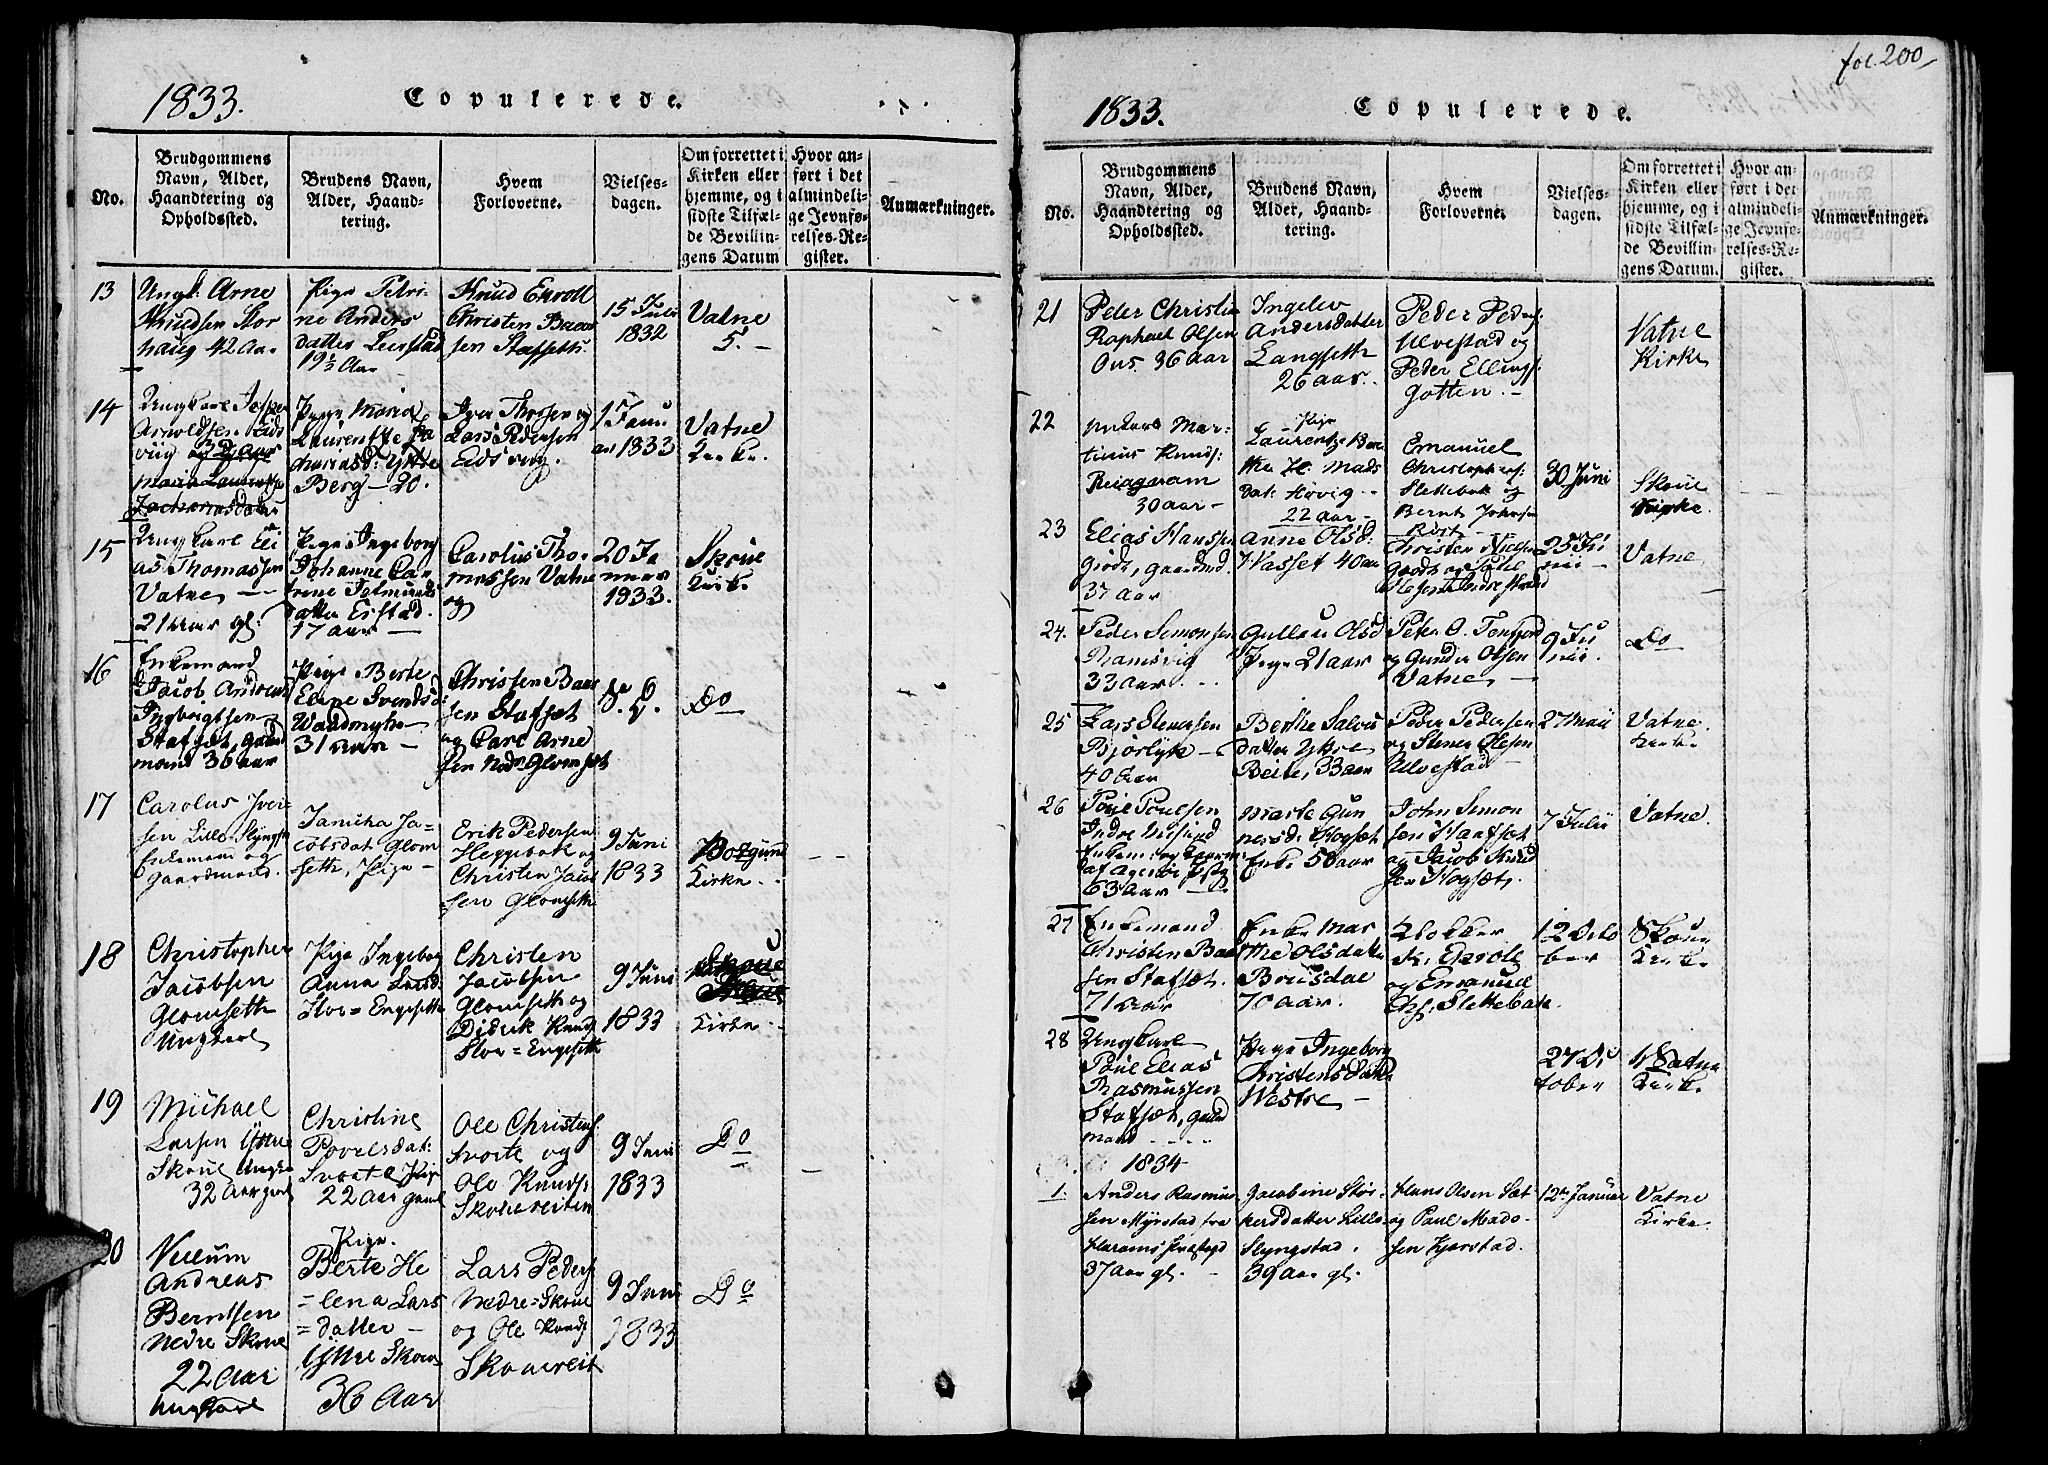 fol. 200
1833.
Copulerede.
No.
Brudgommens
Navn, Alder,
Haandtering og
Opholdssted.
Brudens Navn,
Alder, Haand-
tering.
Hvem
Forloverne.
Vielses-
dagen.
Om forrettet i
Kirken eller
hjemme, og i
sidste Tilfæl-
de Bevillin-
gens Datum
Hvor an-
ført i det
almindeli-
ge Jevnfø-
relses-Re-
gister.
Anmærkninger.
13
Ungk: Arne
Knudsen Stor
haug 42 Aar
Pige Petri-
ne Anders
datter
19½ Aar
Knud
Christen Baar
sen Stafseth
15 Juli
1832
Vatne
14
Ungkarl Jesper
Arnoldsen Eids
viig 32 Aar
Maria Laurentze
Zachariasdatter
Pige Maria
Laurentze Za
chariasd: Ytre
Berg - 20.
Iver Thossen og
Lars Pedersen
Eidsvig.
1 Janu
ar 1833
Vatne
Kirke.
15
Ungkarl Eli
as Thomassen
Vatne
21 Aar gl:
Pige Ingeborg
Johanne Ca
trine
datter Eistad.
17 aar
Carolus Tho
massen Vatne
og
20 Ja
nuar
1833.
Skoue
Kirk.
16
Enkemand
Jacob Andreas
Stafset, gaard
mand 36 aar
Pige Berte
Eline Svendsd:
Waadmyhr
31 aar
Christen Baar
sen Stafset
og Carl Arne
sen Nedr Glomset
Do
17
Carolus Iver
sen Lille Slyngst
Enkemand og
Gaardmand.
Janicha Ja=
cobsdat Glom
seth, Pige
Erik Pedersen
Heggebak og
Christen Jacob
sen Glomseth
9 Juni
1833
Borgund
Kirke
18
Christopher
Jacobsen
Glomseth
Ungkarl
Pige Ingeborg
Anna Larsd.
Stor=Engeseth
Christen
Jacobsen
Glomseth og
Didrik Knuds
Stor=Engeseth
9 Juni
1833
Skoue
Kirke
19
Michael
Larsen Yttre
Skoue Ungk
32 Aar gml
Christine
Povelsdat:
Svorte Pige
22 Aar gaml
Ole Christens:
Svorte og
Ole Knuds:
Skouereiten
9 Juni
1833
Do
20
Villum
Andreas
Berntsen
Nedre Skoue
22 Aar
Ungkarl
Pige.
Berte He
=lena Lars
=datter
Yttre Skoue
36 Aar
Lars Peders
Nedre=Skoue
og Ole Knuds
Skouereit
9 Juni
1833
Do
1833.
Copulerede.
No.
Brudgommens
Navn, Alder,
Haandtering og
Opholdssted.
Brudens Navn,
Alder, Haand-
tering.
Hvem
Forloverne.
Vielses-
dagen.
Om forrettet i
Kirken eller
hjemme, og i
sidste Tilfæl-
de Bevillin-
gens Datum.
Hvor an-
ført i det
almindeli-
ge Jevnfø-
relses-Re-
gister.
Anmærkninger.
21
Peter Christian
Raphael Olsen
Ons. 36 Aar
Ingelev
Andersdatter
Langseth
26 aar.
Peder Peders
Ulvestad og
Peder Ellings:
Gotten.
Vatne
Kirke
22
Mar-
tinus Knuds:
30 aar
Pige
Laurentze Ber
the H: Mads
Dat: Høvig
22 aar
Emanuel
Christophers:
Slettebak og
Bernt Johnsen
30 Juni
Skoue
Kirke.
23
Elias Hanssen
Giødt, gaardmd.
37 aar
Anne Olsd:
Hasset 40 aar
Christen Nielsen
Giødt og
25 Ju
nii
Vatne
24.
Peder Simonsen
Ramsvig
33 aar
Olsd
Pige 21 aar
Peter O. Tenfjord
og Gunder Olsen
Vatne
9 Ju
nii.
Do
25
Lars Stenersen
Bjørlyk
40 aar
Berthe Salvis
datter Ytre
Beite, 33 aar
Peder Pedersen
og Stener Olesen
Ulvestad
27 Maii
Vatne
Kirke
26
Poul Poulsen
Indre
Enkem: og
63 aar
Marte Gun
nersd: Hogset
Enke 50 aar
John Simon
sen Haafset
og Jacob Knud
sen Hogset.
7 Julii
Vatne.
27
Enkemand
Christen Baar
sen Stafset.
71 aar
Enke Mar
the Olsdatter
Bruisdal
70 aar.
Klokker
K. Enroll
og Emanuel
Chr. Slettebak
12 Octo
ber
Skoue
Kirke
28
Ungkarl
Poul Elias
Rasmussen
Stafset, gaard
mand
Pige Ingeborg
Christensdatter
Westre
27 Oc
tober
Vatne
Kirke.
1834
1.
Anders Rasmus
sen Myrstad fra
Harams Præstegd
37 Aar gl.
Jacobine Stør-
kersdatter Lille
Slyngstad.
39 Aar gl.
Hans Olsen Sæt
og Paul Mads-
sen Kjerstad.
12te Januar
Vatne
Kirke